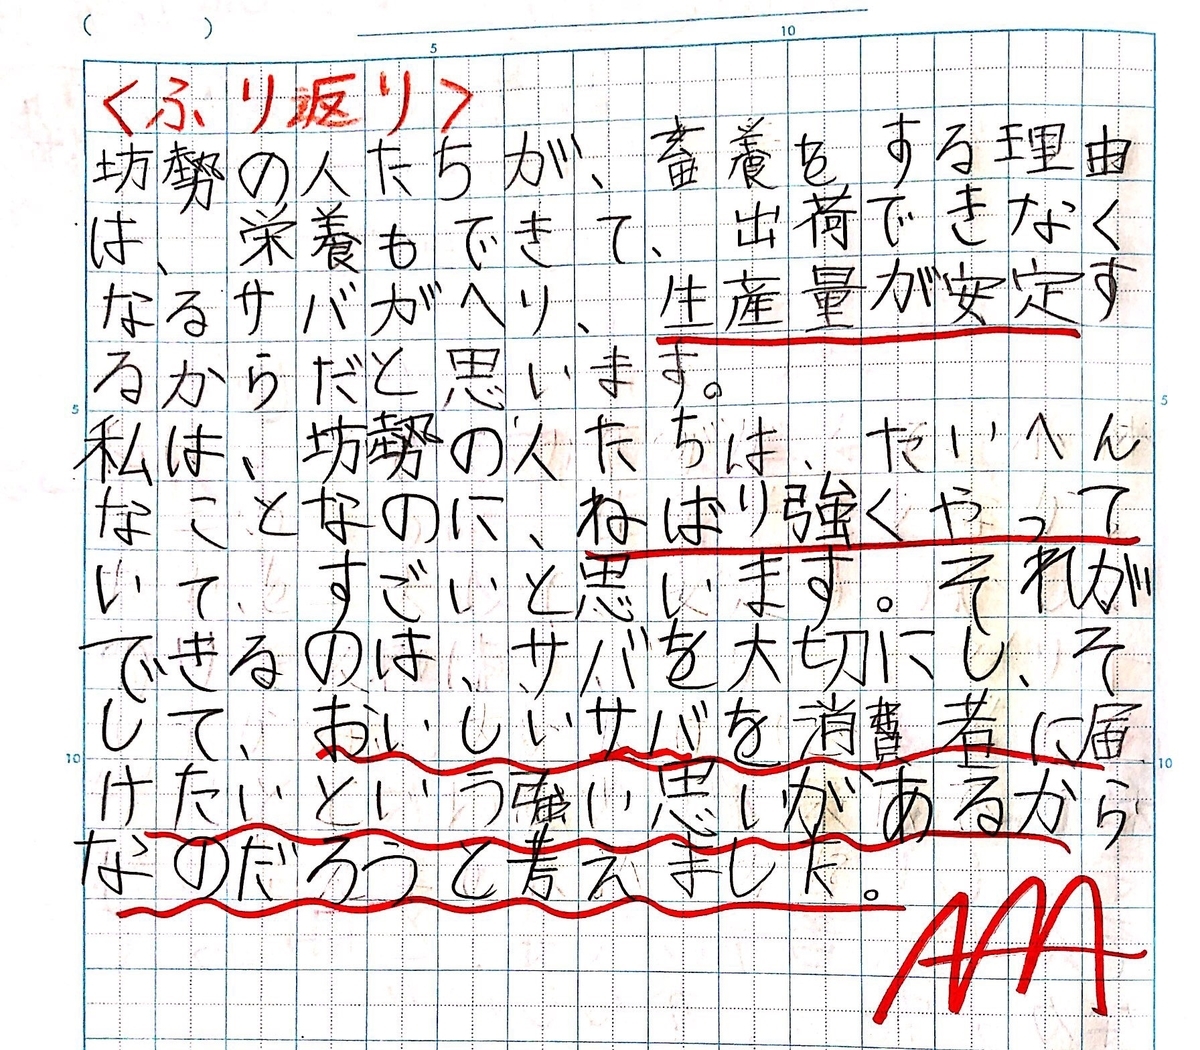 ( )
5 10
<ふり返り>
坊勢の人たちが、畜養をする理由
は、栄養もできて、出荷できなく
なるサバがへり、生産量が安定す
るからだと思います。
5 5
私は、坊勢の人たちは、たいへん
なことなのに、ねばり強くやって
いて、すごいと思います。それが
できるのは、サバを大切にし、そ
して、おいしいサバを消費者に届
10 10
けたいという強い思いがあるから
なのだろうと考えました。
AAA